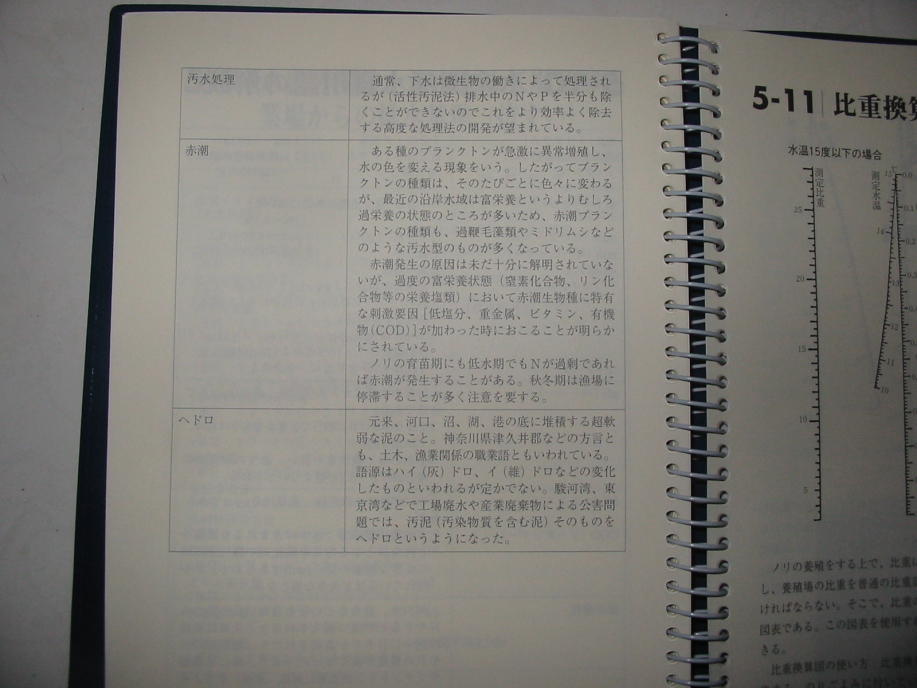 汚水処理
通常、下水は微生物の働きによって処理され
るが(活性汚泥法)排水中のNやPを半分も除
くことができないのでこれをより効率よく除去
する高度な処理法の開発が望まれている。
赤潮
ある種のプランクトンが急激に異常増殖し、
水の色を変える現象をいう。したがってプラン
クトンの種類は、そのたびごとに色々に変わる
が、最近の沿岸水域は富栄養というよりむしろ
過栄養の状態のところが多いため、赤潮プラン
クトンの種類も、過鞭毛藻類やミドリムシなど
のような汚水型のものが多くなっている。
赤潮発生の原因は未だ十分に解明されていな
いが、過度の富栄養状態(窒素化合物、リン化
合物等の栄養塩類)において赤潮生物種に特有
な刺激要因[低塩分、重金属、ビタミン、有機
物(COD)]が加わった時におこることが明らか
にされている。
ノリの育苗期にも低水期でもNが過剰であれ
ば赤潮が発生することがある。秋冬期は漁場に
停滞することが多く注意を要する。
ヘドロ
元来、河口、沼、湖、港の底に堆積する超軟
弱な泥のこと。神奈川県津久井郡などの方言と
も、土木、漁業関係の職業語ともいわれている。
語源はハイ(灰)ドロ、イ(維)ドロなどの変化
したものといわれるが定かでない。駿河湾、東
京湾などで工場廃水や産業廃棄物による公害問
題では、汚泥(汚染物質を含む泥)そのものを
ヘドロというようになった。
5-11 比重換算
水温15度以下の場合
測定比重
測定水温
25
20
15
10
5
15
14
11
10
0.0
ノリの養殖をする上で、比重
し、養殖場の比重を普通の比重
ければならない。そこで、比重
図表である。この図表を使用す
きる。
比重換算図の使い方 比重換